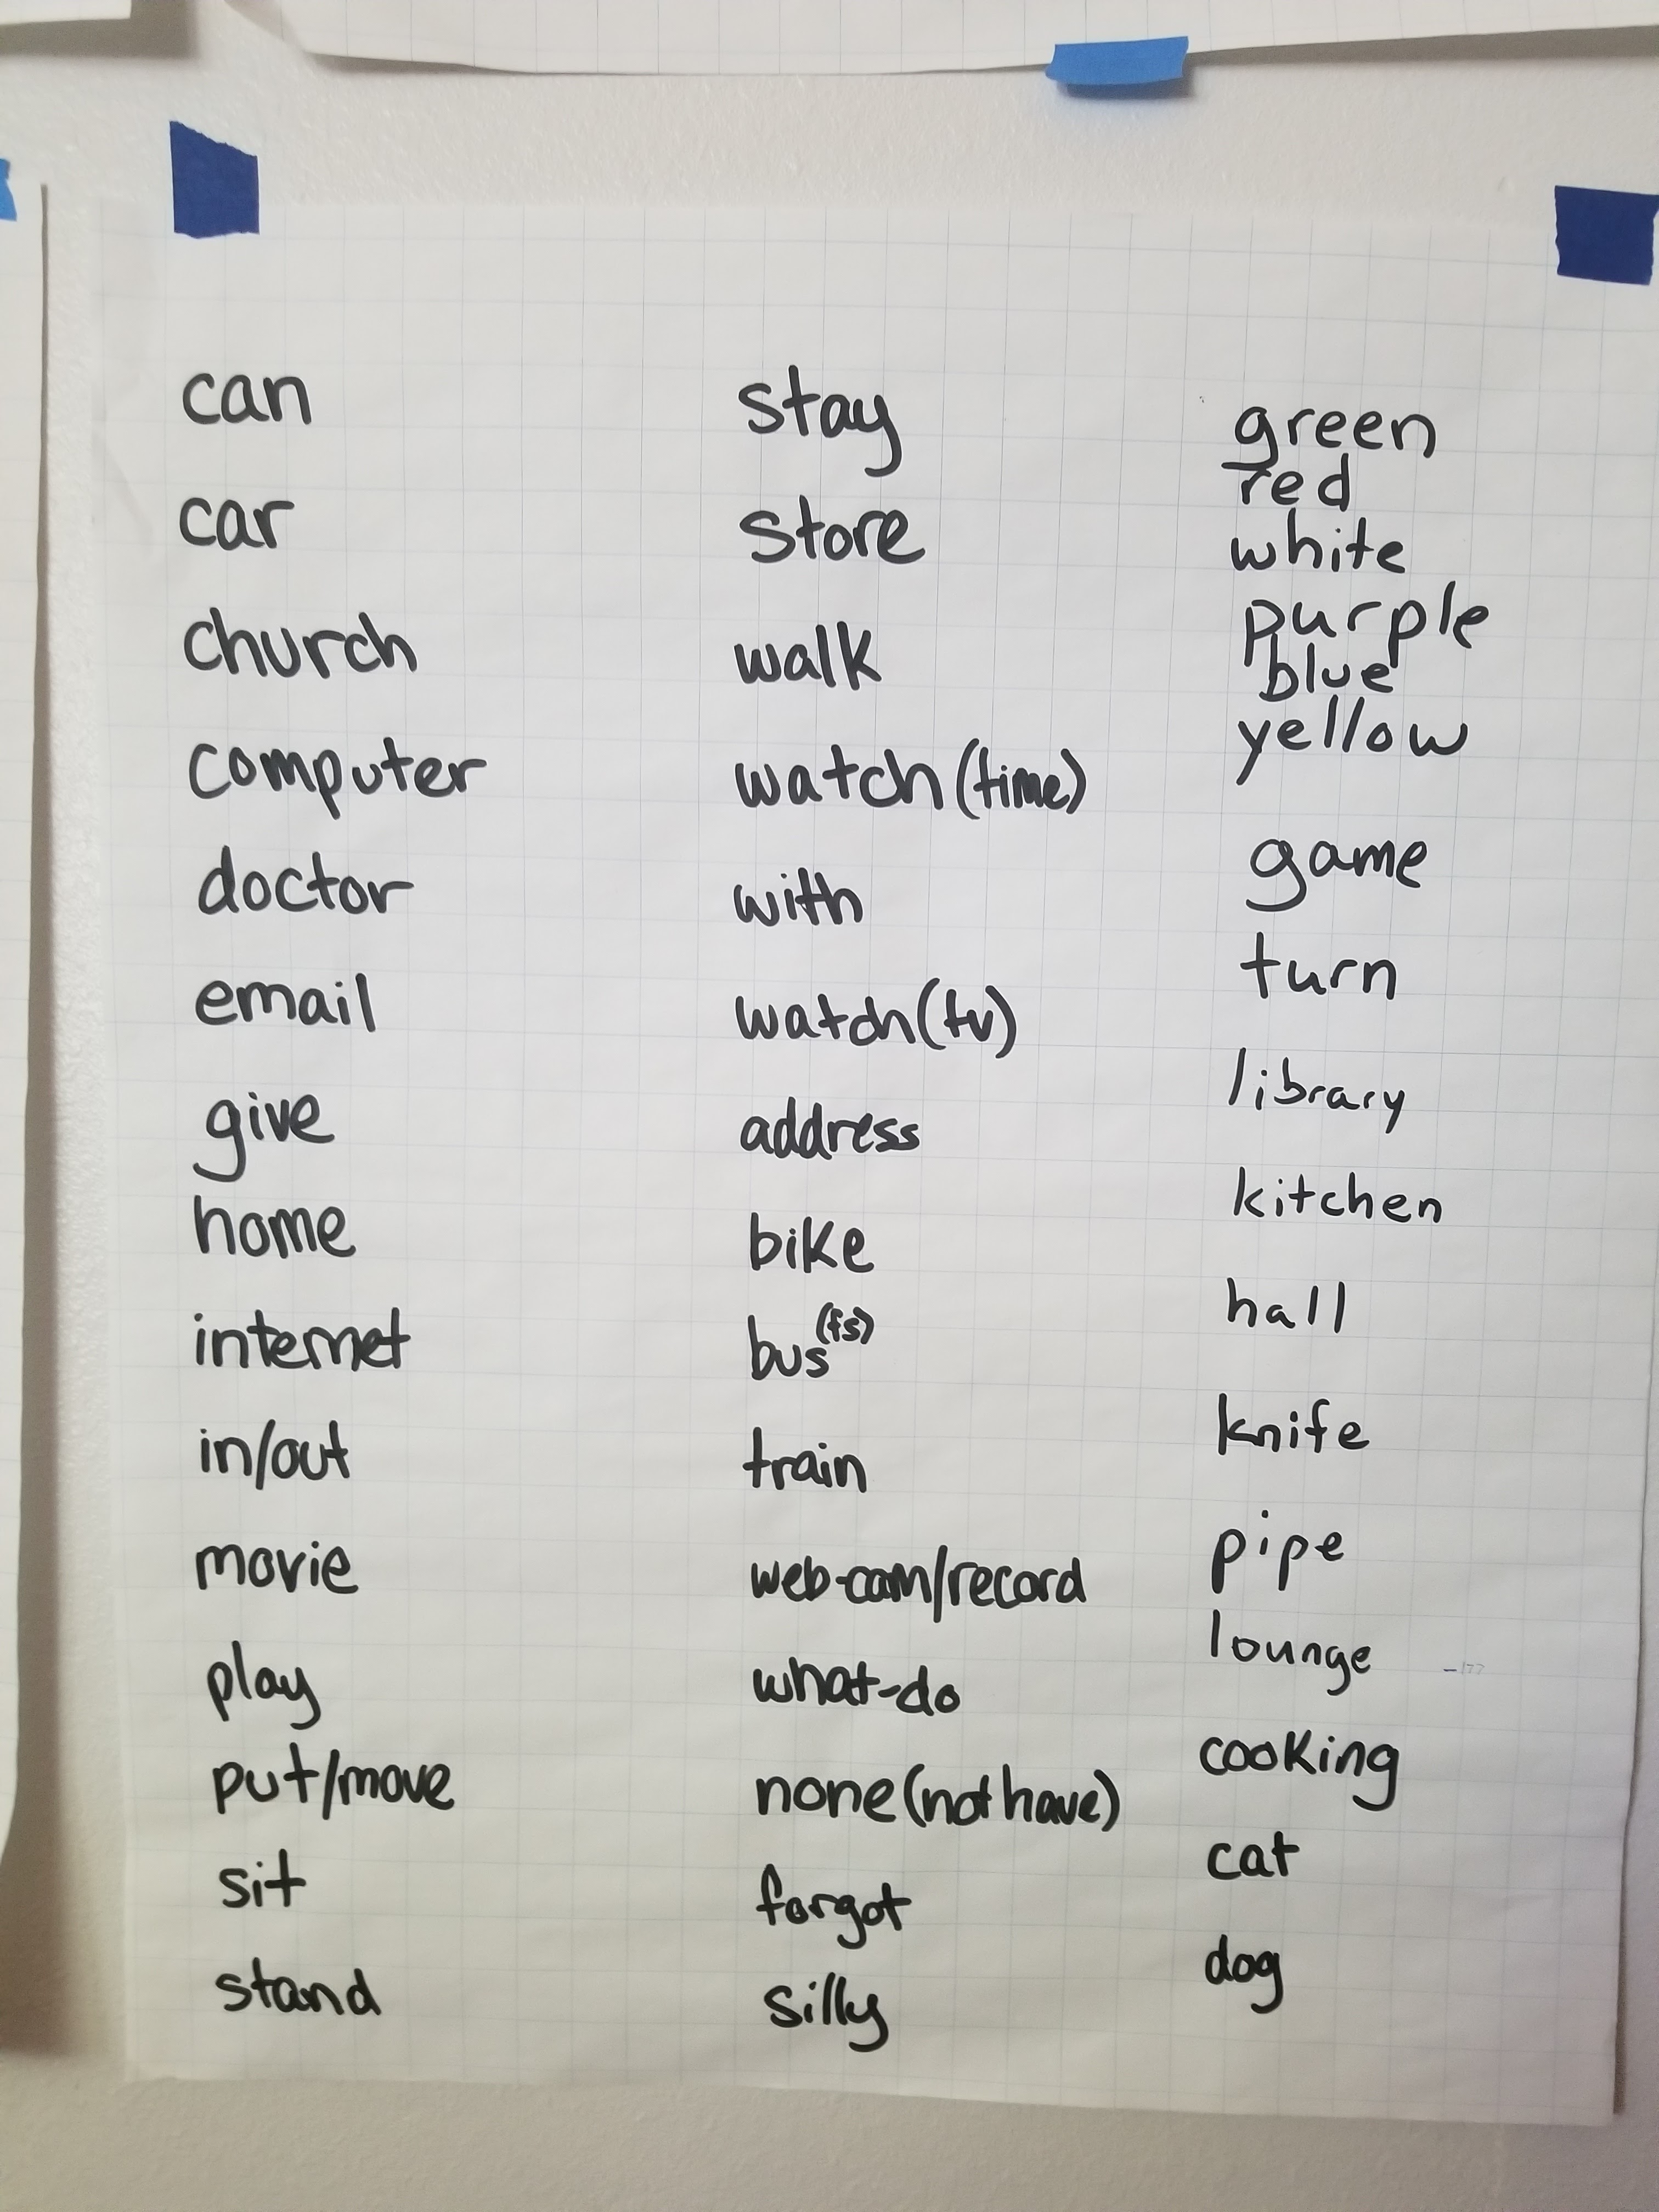 can
car
church
computer
doctor
email
give
home
internet
in/out
movie
play
put/move
sit
stand
stay
store
walk
watch (time)
with
watch (tv)
address
bike
bus (fs)
train
web-cam/record
what-do
none (not have)
forgot
silly
green
red
white
purple
blue
yellow
game
turn
library
kitchen
hall
knife
pipe
lounge
cooking
cat
dog